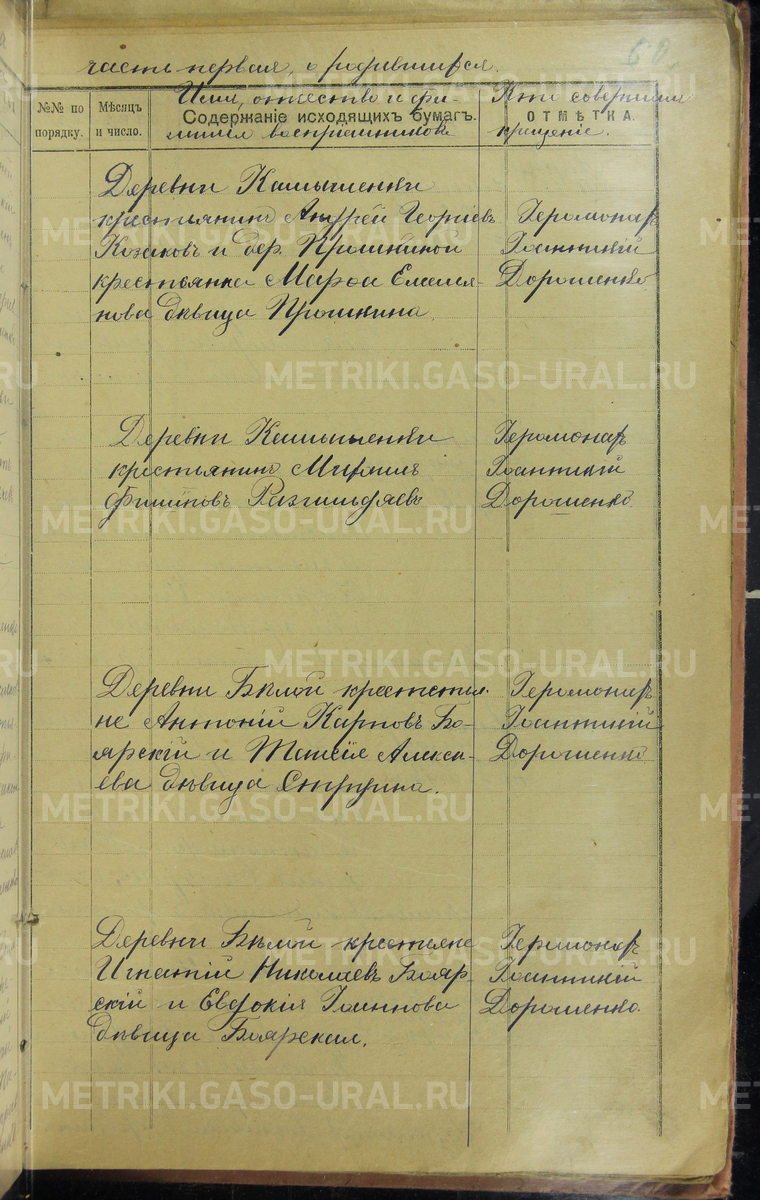 часть первая, о родившихся.
68.
№№ по порядку.
Мѣсяцъ и число.
Имя, отчество и фа-
Содержаніе исходящихъ бумагъ.
милія воспріемниковъ
Кто совершилъ
ОТМѢТКА.
крещеніе.
Деревни Камышенки
крестьянинъ Андрей Георгіевъ
Козаковъ и дер. Прошкиной
крестьянка Марѳа Емелья-
нова дѣвица Прошкина.
Іеромонахъ
Іоанникій
Дорошенко.
Деревни Камышенки
крестьянинъ Михаилъ
Разгильдяевъ
Іеромонахъ
Іоанникій
Дорошенко.
Деревни Бѣлой крестья-
не Антоній Карповъ Бо-
ярскій и Алексѣ-
ева дѣвица
Іеромонахъ
Іоанникій
Дорошенко
Деревни Бѣлой крестьяне
Игнатій Николаевъ Бояр-
скій и Евдокія Іоаннова
дѣвица Боярская.
Іеромонахъ
Іоанникій
Дорошенко.
METRIKI.GASO-URAL.RU